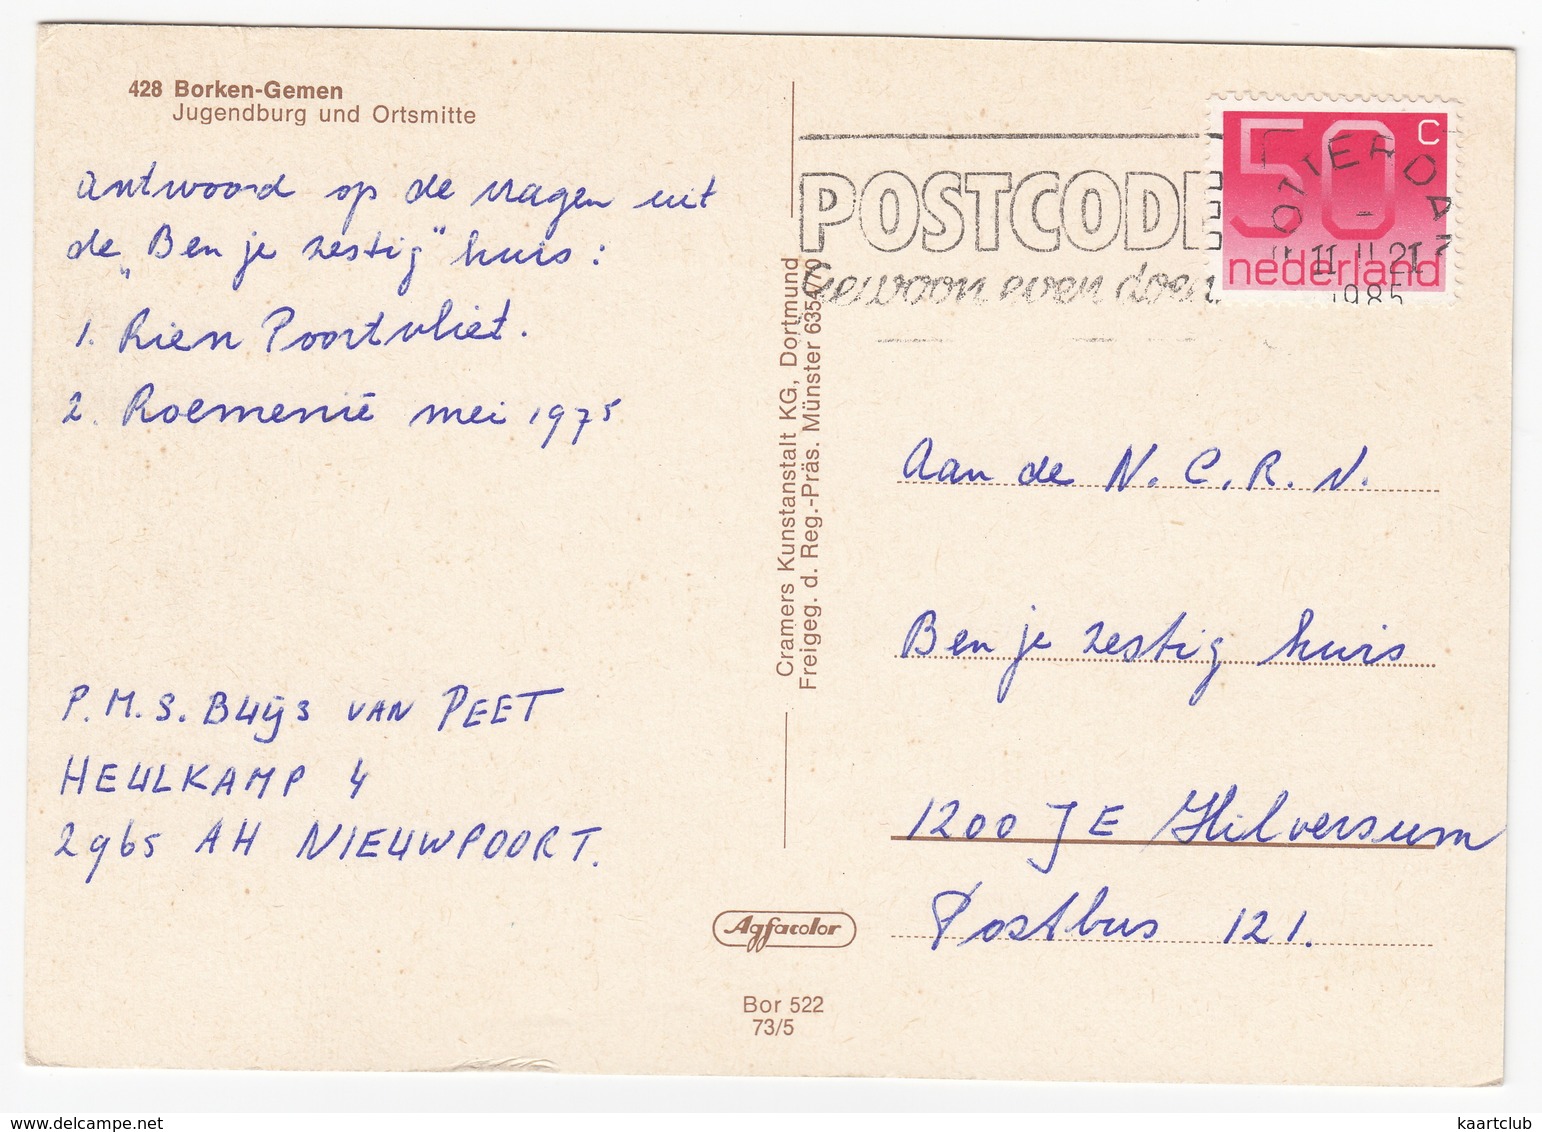 428 Borken-Gemen
Jugendburg und Ortsmitte
antwoord op de vragen uit
de „Ben je zestig" huis:
1. Rien Poortvliet.
2. Roemenië mei 1975
P.M.S. Buijs VAN PEET
HEULKAMP 4
2965 AH NIEUWPOORT.
Cramers Kunstanstalt KG, Dortmund
Freigeg. d. Reg.-Präs. Münster 6354/70
Agfacolor
Bor 522
73/5
POSTCODE
Gewoon even doen
50 c
nederland
1985
Aan de N.C.R.V.
Ben je zestig huis
1200 JE Hilversum
Postbus 121.
www.delcampe.net
kaartclub